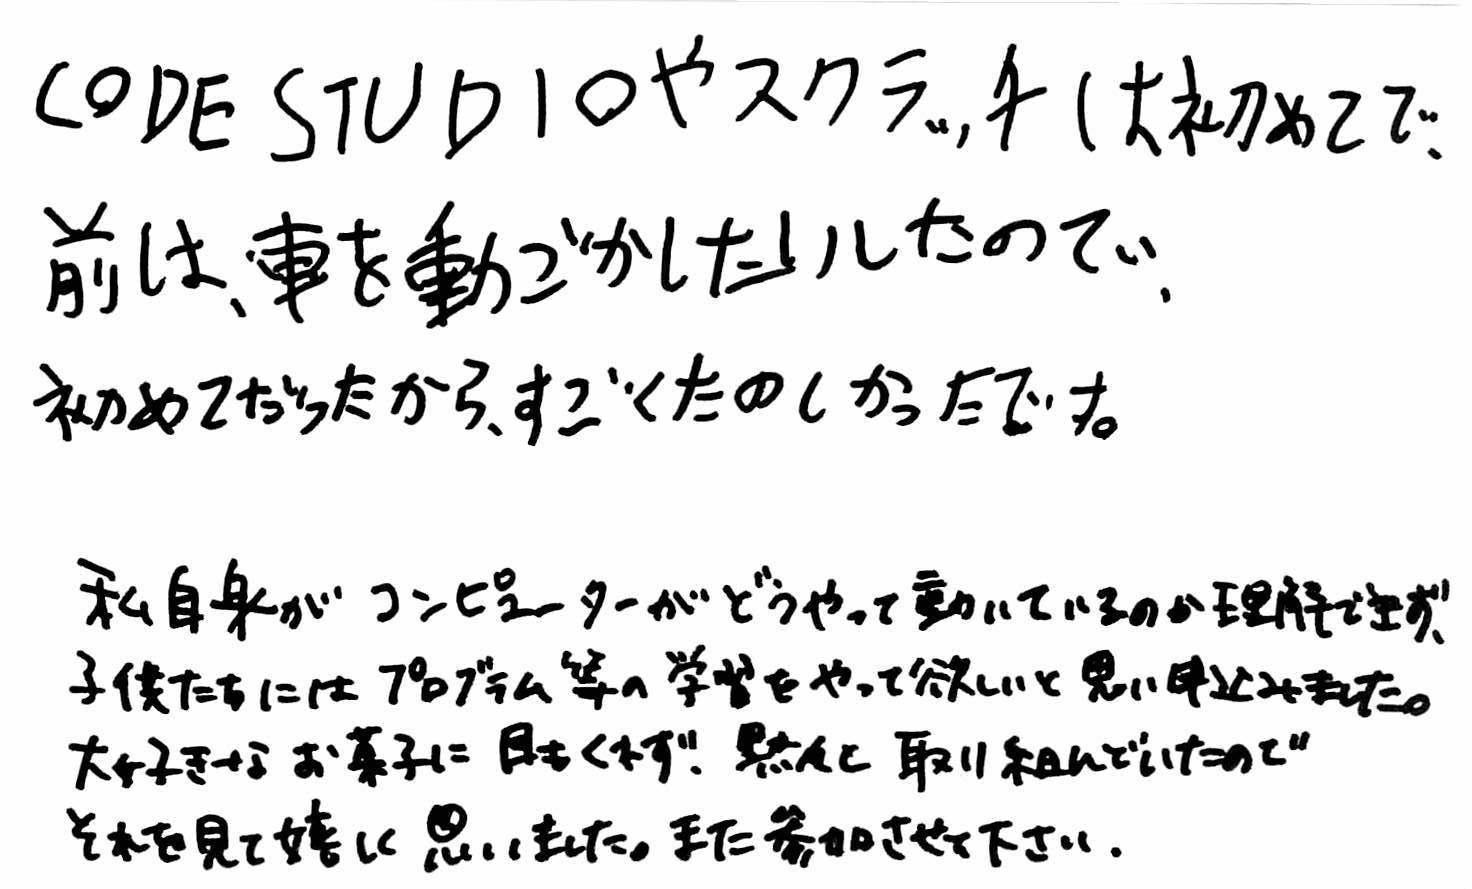 CODE STUDIOやスクラッチは初めてで、
前は、車を動ごかしたりしたので、
初めてだったから、すごくたのしかったです。
私自身がコンピューターがどうやって動いているのか理解できず、
子僕たちにはプログラム等の学習をやって欲しいと思い申込みました。
大好きなお菓子に目もくれず、黙々と取り組んでいたので
それを見て嬉しく思いました。また参加させて下さい.